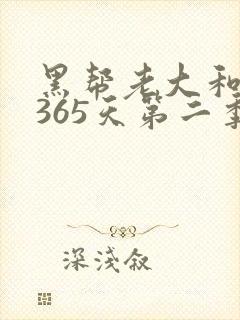 黑帮老大和
365天第二季
深浅叙